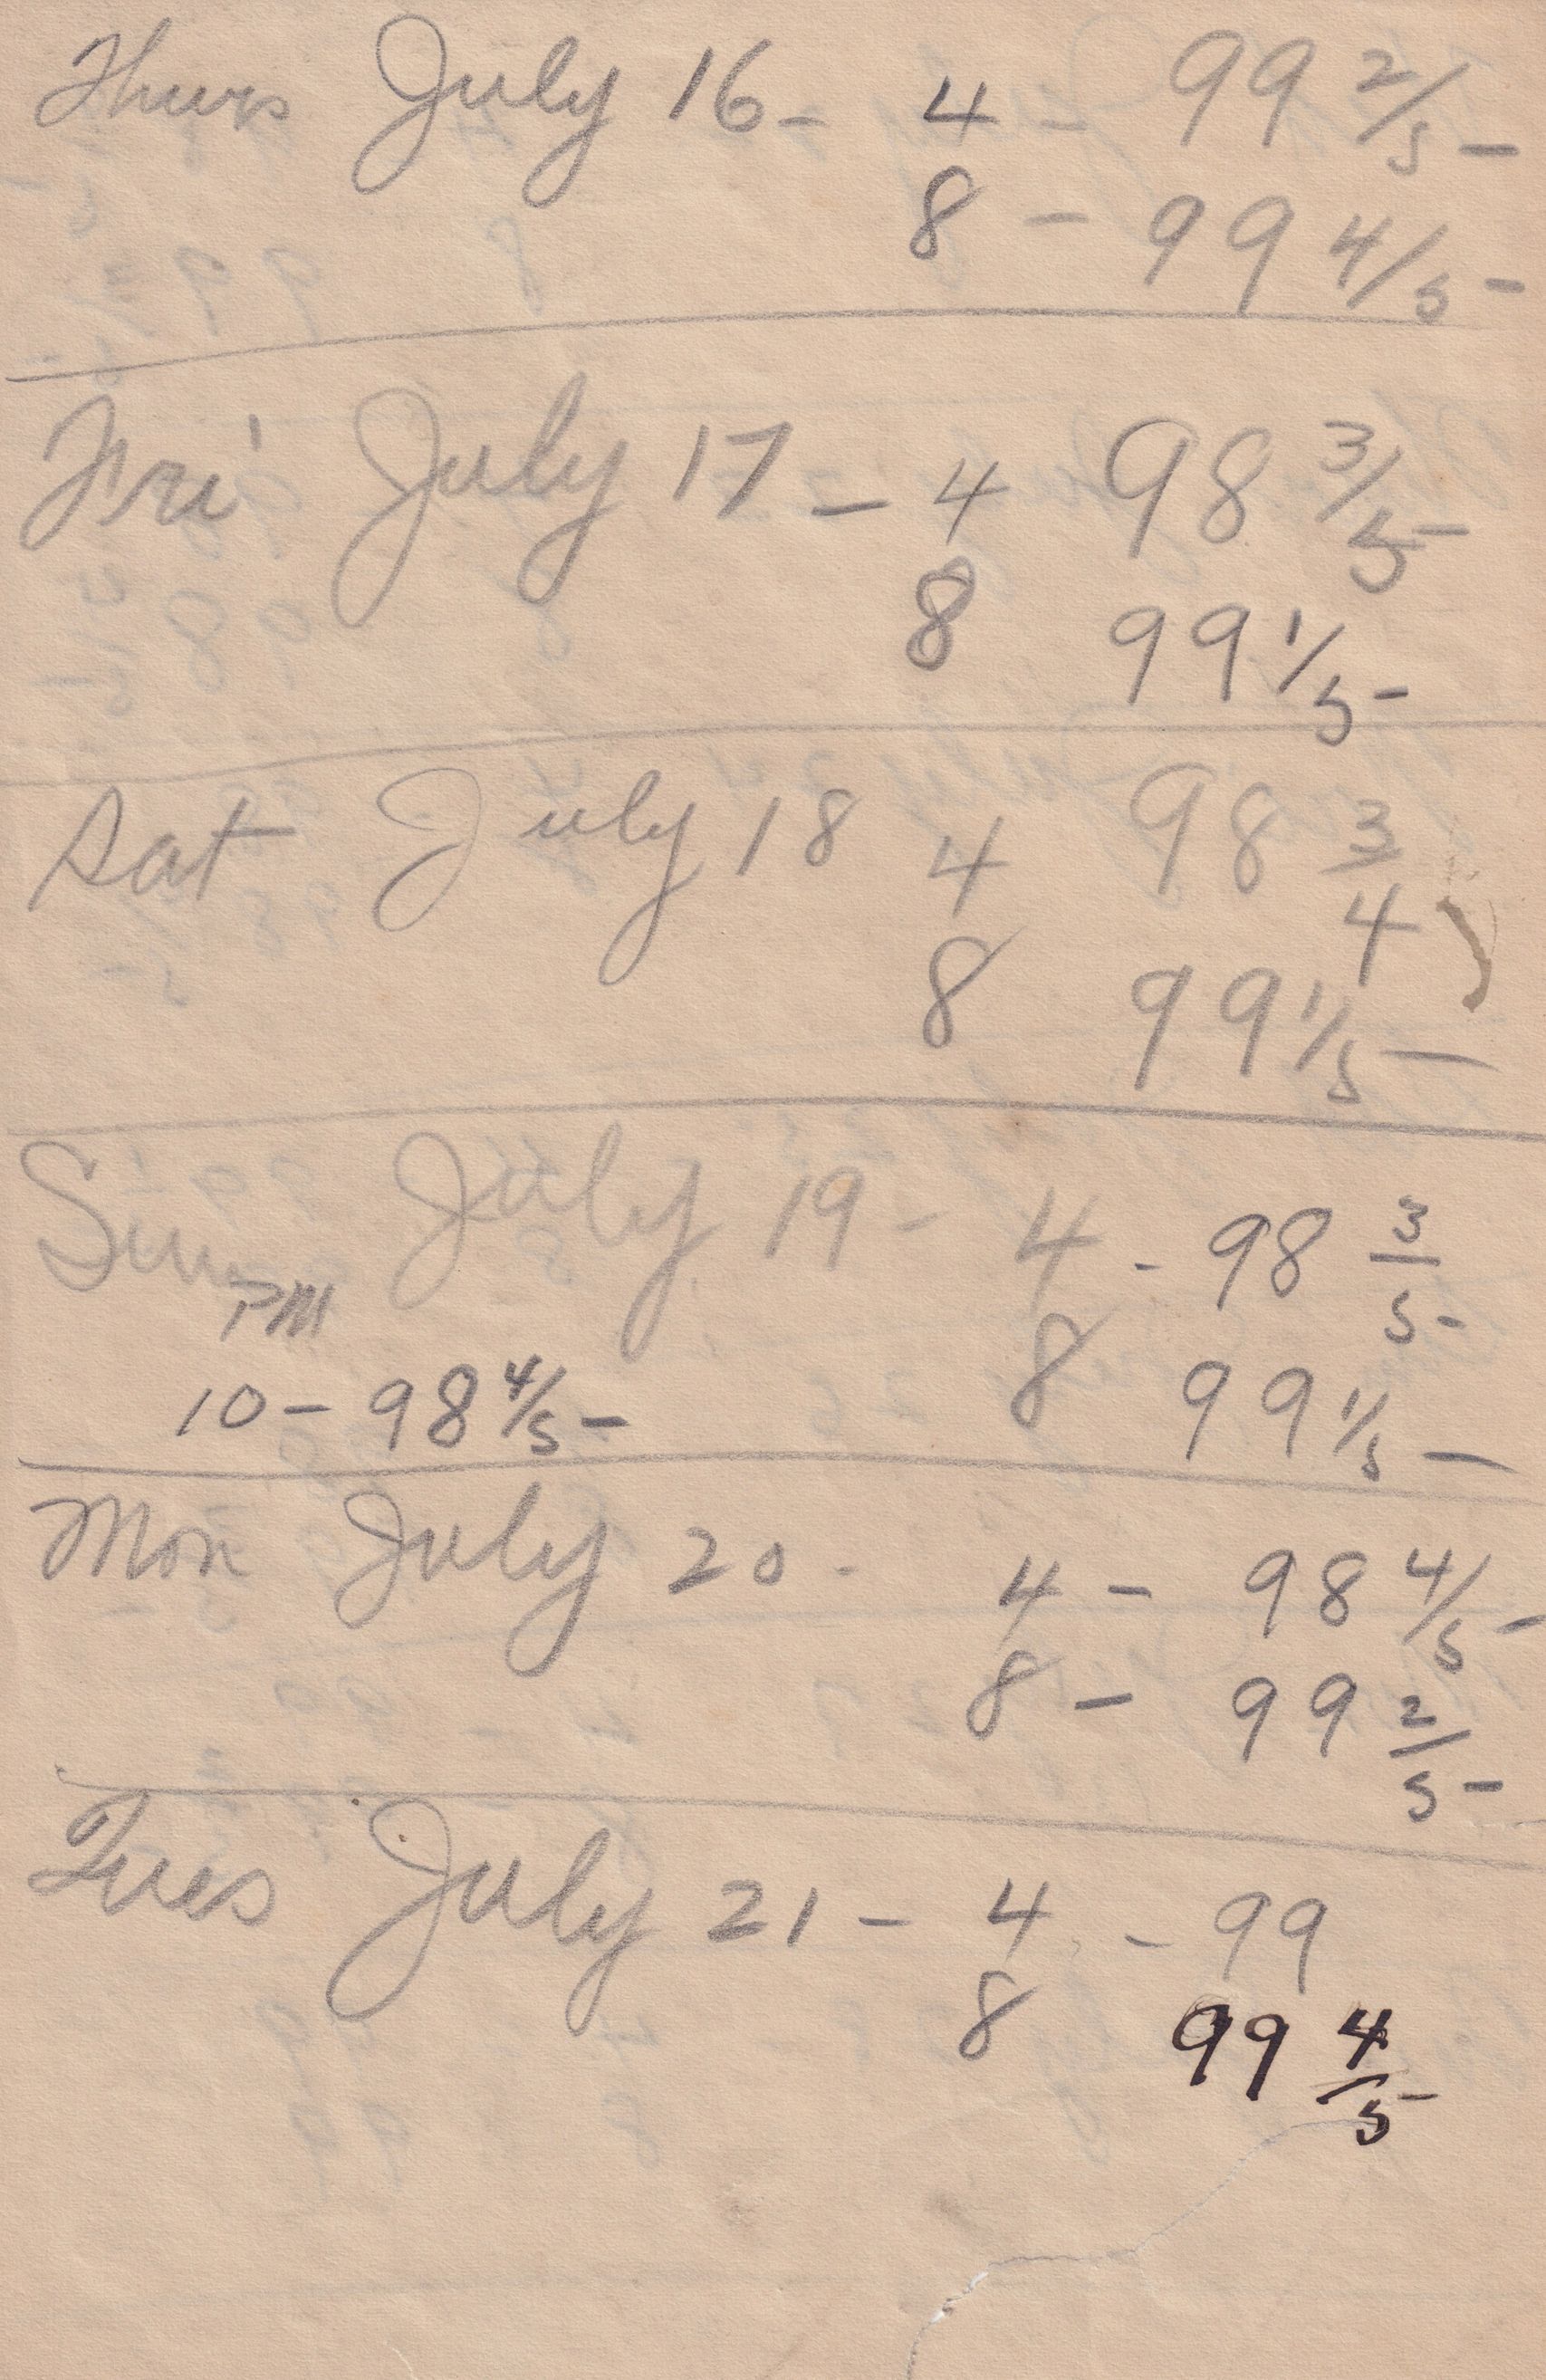 Thurs July 16 - 4 - 99 2/5
8 - 99 4/5
Fri July 17 - 4 98 3/5
8 99 1/5
Sat July 18 4 98 3/4
8 99 1/5
Sun July 19 - 4 - 98 3/5
PM 8 99 1/5
10 - 98 4/5
Mon July 20 - 4 - 98 4/5
8 - 99 2/5
Tues July 21 - 4 - 99
8 99 4/5